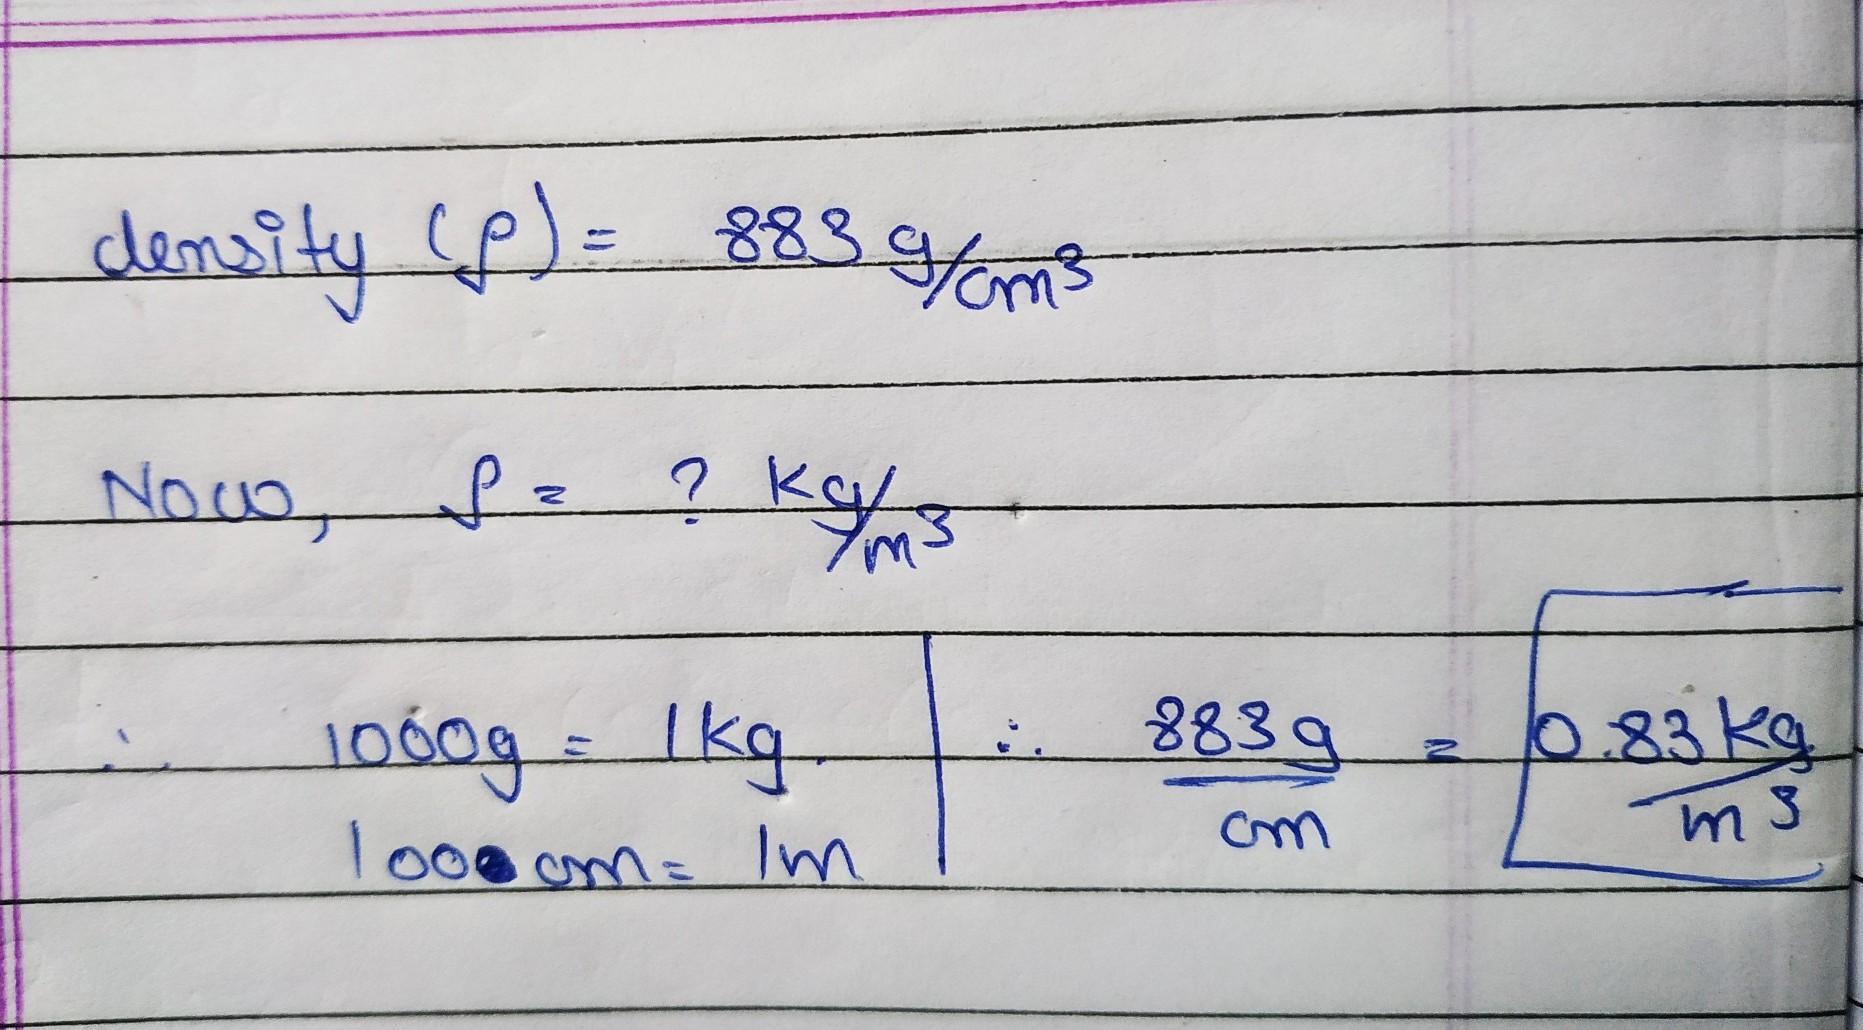 density (ρ) = 883 g/cm³
Now, ρ = ? kg/m³
∴ 1000g = 1kg.
100 cm = 1m
∴ 883g/cm = 0.83 kg/m³